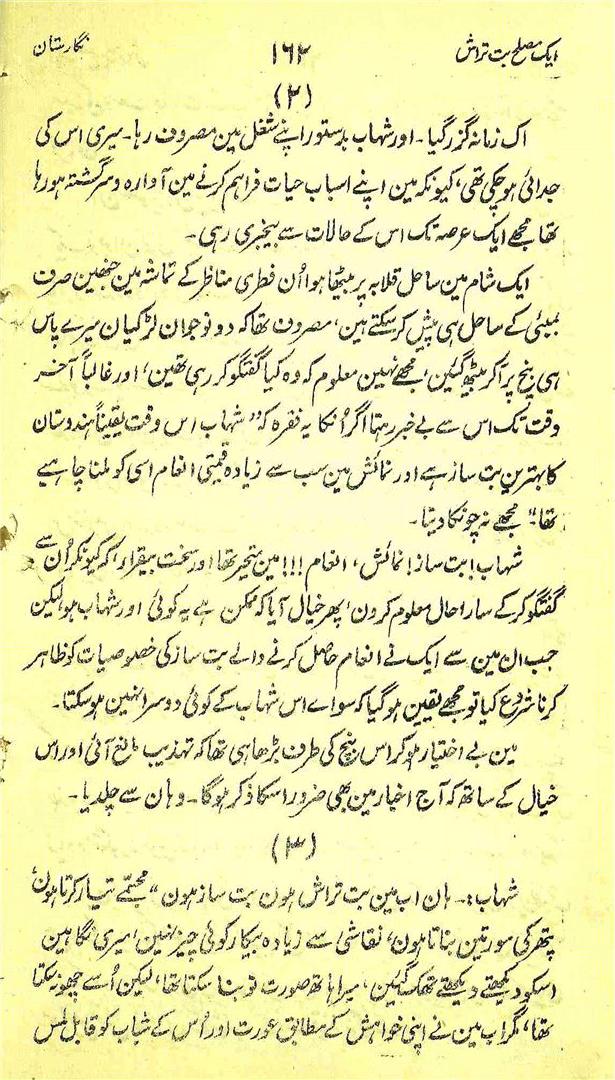 ایک مصلح بت تراش ۱۶۲ نگارستان
(۲)
اک زمانہ گزر گیا۔ اور شہاب بدستور اپنے شغل مین مصروف رہا۔ میری اس کی
جدائی ہوچکی تھی، کیونکہ مین اپنے اسباب حیات فراہم کرنے مین آوارہ و سرگشتہ ہو رہا
تھا مجھے ایک عرصہ تک اس کے حالات سے بیخبری رہی۔
ایک شام مین ساحل قلابہ پر بیٹھا ہوا اُن فطری مناظر کے تماشہ مین جنھین صرف
بمبئی کے ساحل ہی پیش کرسکتے ہین، مصروف تھا کہ دو نوجوان لڑکیان میرے پاس
ہی بنچ پر آکر بیٹھ گئین، مجھے نہین معلوم کہ وہ کیا گفتگو کر رہی تھین، اور غالباً آخر
وقت تک اس سے بے خبر رہتا اگر اُنکا یہ فقرہ کہ ”شہاب اس وقت یقیناً ہندوستان
کا بہترین بت ساز ہے اور نمائش مین سب سے زیادہ قیمتی انعام اسی کو ملنا چاہیے
تھا“ مجھے نہ چونکا دیتا۔
شہاب! بت ساز! نمائش، انعام!!! مین متحیر تھا اور سخت بیقرار، کہ کیونکر اُن سے
گفتگو کرکے سارا حال معلوم کرون، پھر خیال آیا کہ ممکن ہے یہ کوئی اور شہاب ہو، لیکن
جب ان مین سے ایک نے انعام حاصل کرنے والے بت ساز کی خصوصیات کو ظاہر
کرنا شروع کیا تو مجھے یقین ہوگیا کہ سواے اس شہاب کے کوئی دوسرا نہین ہوسکتا۔
مین بے اختیار ہوکر اس بنچ کی طرف بڑھا ہی تھا کہ تہذیب مانع آئی اور اس
خیال کے ساتھ کہ آج اخبار مین بھی ضرور اسکا ذکر ہوگا۔ وہان سے چلدیا۔
(۳)
شہاب:۔ ہان اب مین بت تراش ہون بت ساز ہون“ مجسّمے تیار کرتا ہون،
پتھر کی مورتین بناتا ہون، نقاشی سے زیادہ بیکار کوئی چیز نہین، میری نگاہین
اسکو دیکھتے دیکھتے تھک گئین، میرا ہاتھ صورت تو بنا سکتا تھا، لیکن اُسے چھو نہ سکتا
تھا، مگر اب مین نے اپنی خواہش کے مطابق عورت اور اُس کے شباب کو قابل لمس